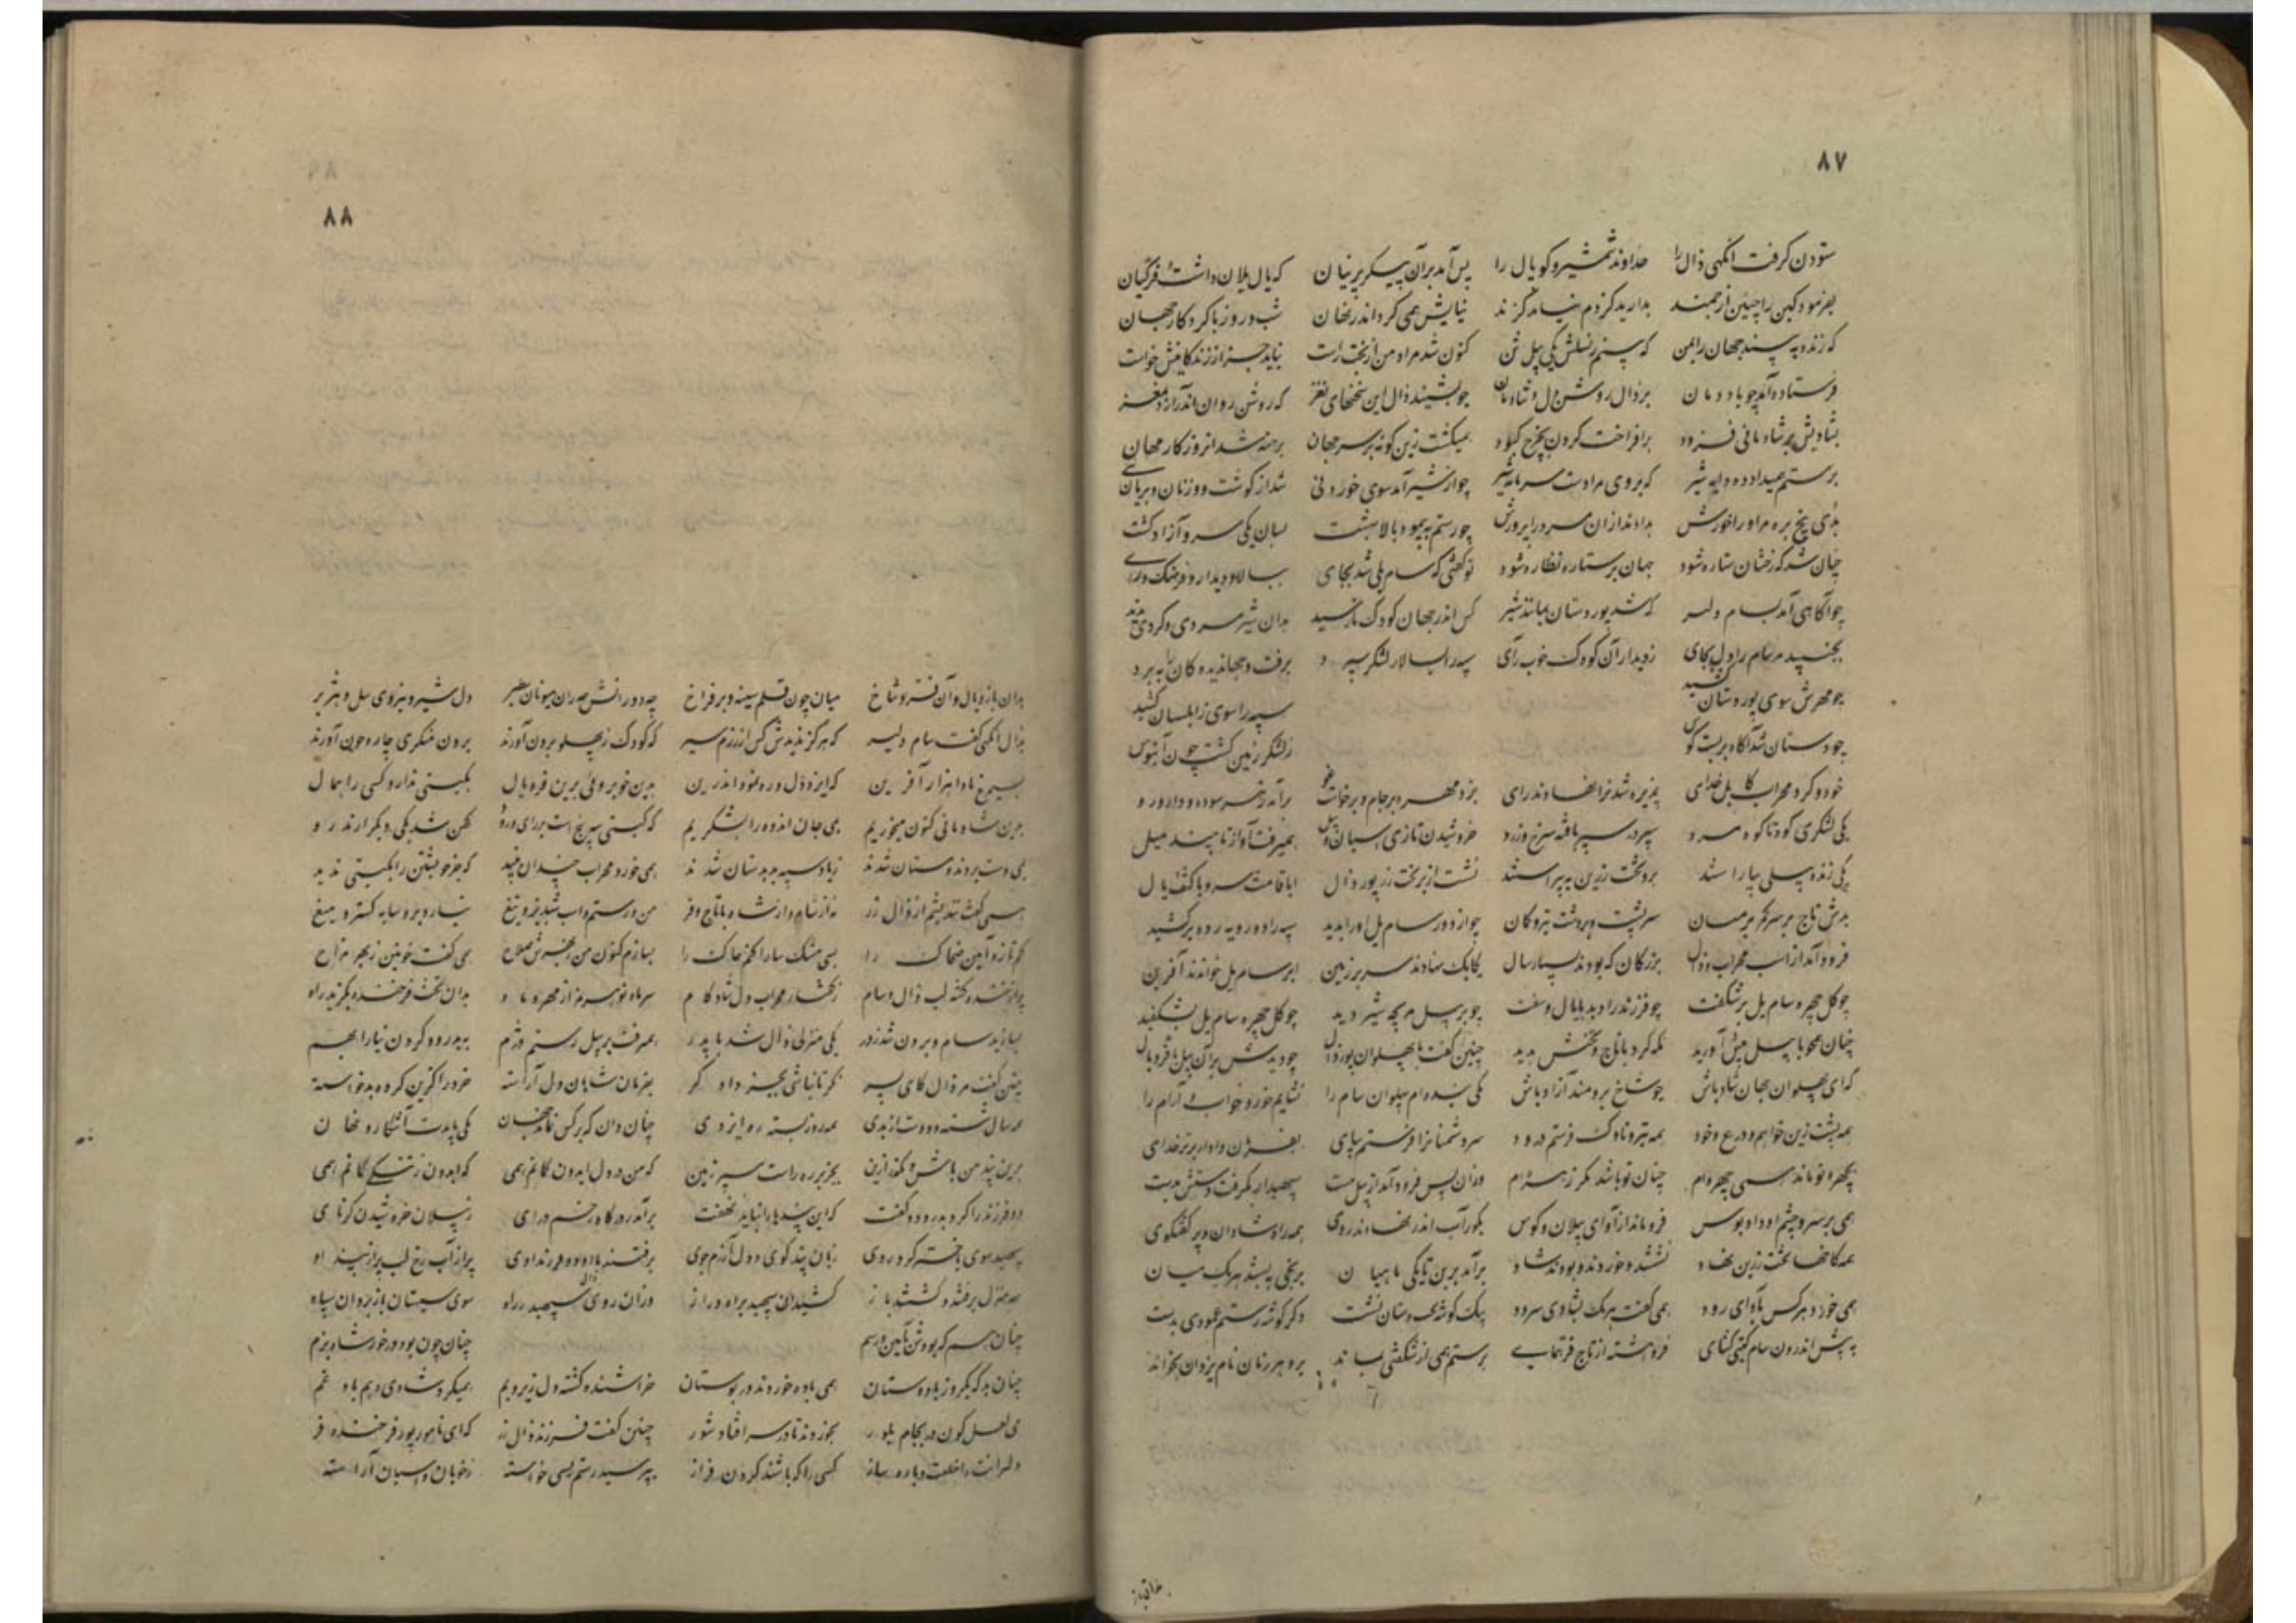 ۸۷
ستودن گرفت آنگهی زال را خداوند شمشیر و کوپال را پس آمد بر آن پیکر پرنیان که یال یلان داشت و فر کیان
بفرمود کین را چنین ارجمند بدارید کز دم نیابد گزند نیایش همی کرد اندر نهان شب و روز با کردگار جهان
که زنده به بیند جهان بین من که بینم ز نسلش یکی پیل تن کنون شد مراد من از بخت راست نباید جز از زندگانیش خواست
فرستاده آمد چو باد دمان بر زال روشن دل و شادمان چو بشنید زال این سخنهای نغز که روشن روان اندر آرد بمغز
بشادیش بر شادمانی فزود برافراخت گردن بچرخ کبود همیگشت زین گونه بر سر جهان برهنه شد از روزگار مهان
برستم همیداد ده دایه شیر که بروی مرادست سرمایه شیر چو از شیر آمد سوی خوردنی شد از گوشت و وز نان و بریان
بدی پنج بره مر او را خورش بدادند ازان مرد را پرورش چو رستم به پیمود بالا بهشت بسان یکی سرو آزاد گشت
چنان شد که رخشان ستاره شود جهان بر ستاره نظاره شود تو گفتی که سام یلی شد بجای ببالا و دیدار و فرهنگ و رای
چو آگاهی آمد بسام دلیر که شد پور دستان همانند شیر کس اندر جهان کودک نارسید بدان شیر مردی و گردی ندید
بجنبید مر سام را دل بجای ز دیدار آن کودک خوب رای سپه را بسالار لشکر سپرد برفت و جهاندیدگان را ببرد
چو مهرش سوی پور دستان کشید سپه را سوی زابلستان کشید
چو دستان شد آگاه بربست کوس ز لشکر زمین گشت چون آبنوس
خود و گرد مهراب کابل خدای پذیره شدن را نهادند رای بزد مهره بر جام و برخاست غو برآمد ز هر سو ده و دار و رو
یکی لشکری کوه تا کوه مرد سپر در سپر بافته سرخ و زرد خروشیدن تازی اسپان و پیل همیرفت آواز تا چند میل
یکی زنده پیلی بیاراستند برو تخت زرین به پیراستند نشست از بر تخت زر پور زال ابا قامت سرو با کتف یال
بسرش تاج بر سر کمر بر میان سپر پشت و بر دست تیر و کمان چو از دور سام یل او را بدید سپه را دو رویه رده برکشید
فرود آمد از اسب مهراب و زال بزرگان که بودند بسیار سال یکایک نهادند سر بر زمین ابر سام یل خواندند آفرین
چو گل چهره سام یل برشگفت چو فرزند را دید با یال و سفت چو بر پیل بر بچه شیر دید چو گل چهره سام یل بشکفید
چنان همچو با پیل پیش آورید نگه کرد با تاج و تختش بدید چنین گفت با پهلوان پور زال چو دیدش بر آن پیل با فر و یال
که ای پهلوان جهان شاد باش چو شاخ برومند آزاد باش یکی بنده ام پهلوان سام را نشایم خور و خواب و آرام را
همه پشت زین خواهم و درع و خود همه تیر و ناوک فرستم درود سر دشمنانرا فرستم بپای بفرمان دادار برتر خدای
بچهره تو ماند همی چهره ام چنان تو باشد مگر زهره ام وزان پس فرود آمد از پیل مست سپهبدار بگرفت دستش بدست
همی بر سر و چشم او داد بوس فرو ماند از آوای پیلان و کوس بکوراب اندر نهادند روی همه راه شادان و پر گفتگوی
همه کاخها تخت زرین نهاد نشستند و خوردند و بودند شاد برآمد برین تا یکی ماهیان برنجی نبستند هر یک میان
همی خورد هر کس بآوای رود همی گفت هر یک بشادی سرود بیک گوشه تخت دستان نشست دگر گوشه رستم عمودی بدست
به پیش اندرون سام گیتی گشای فروهشته از تاج فر همای برستم همی از شگفتی بماند برو هر زمان نام یزدان بخواند
۸۸
بدان بازو و یال و آن فر و شاخ میان چون قلم سینه و بر فراخ چه دو رانش دو ران هیونان ستبر دل شیر و نیروی پیل و هژبر
بزال آنگهی گفت سام دلیر که هرگز ندیدش کس از رزم سیر که کودک ز پهلو برون آورند برون منگری چاره چون آورند
بسیمرغ بادا هزار آفرین که ایزد ورا ره نمود اندرین بدین خوبرویی برین فر و یال بگیتی ندارد کسی را همال
بدین شادمانی کنون میخوریم بمی جان اندوه را بشکریم که گیتی سپنج است بر رای و رو کهن شد یکی دیگر آرند نو
بمی دست بردند و مستان شدند ز یاد سپهبد بدستان شدند همی خورد مهراب چندان نبید که جز خویشتن را بگیتی ندید
همی گفت نندیشم از زال زر نه از سام و از شاه با تاج و فر من و رستم و اسب شبدیز و تیغ نیارد برو سایه گسترد میغ
کنم تازه آیین ضحاک را بپی مشک سارا کنم خاک را بسازم کنون من ز بهرش سلاح همی گفت چونین ز بهر مزاح
پر از خنده گشته لب زال و سام ز گفتار مهراب دل شادکام سر ماه نو هرمز از مهر ماه بدان تخت فرخنده بگزید راه
بسازید سام و برون شد ز در یکی منزلی زال شد با پدر همیرفت بر پیل رستم دژم به پدرود کردن نیا را بهم
چنین گفت مر زال کای پسر نگر تا نباشی بجز دادگر بفرمان شاهان دل آراسته خرد را گزین کرده بر خواسته
همه سال شسته دو دست از بدی همه روز جسته ره ایزدی چنان دان که بر کس نماند جهان یکی بایدت آشکار و نهان
برین پند من باش و مگذر ازین بجز بر ره راست مسپر زمین که من در دل ایدون گمانم همی که ایدون ز تنگی گمانم همی
دو فرزند را کرد پدرود و گفت که این پندها را نباید نهفت برآمد ز درگاه زخم درای ز پیلان خروشیدن کرنای
سپهبد سوی باختر کرد روی زبان پند گوی و دل آزرم جوی برفتند با او دو فرزند اوی پر از آب رخ لب پر از پند او
سه منزل برفتند و گشتند باز کشید آن سپهبد براه دراز وزان روی زال سپهبد ز راه سوی سیستان باز برد آن سپاه
چنان هم که بودش آیین و رسم چنان چون بود در خور شاه بزم
چنان بد که یکروز با دوستان همی باده خوردند در بوستان خراشنده گشته دل زیر و بم همیکرد شادی دهم باد غم
می لعل گون در بجام بلور بخوردند تا در سر افتاد شور چنین گفت فرزند زال زر که ای نامور پور فرخنده فر
دلیرانت را خلعت و باره ساز کسی را که باشند گردن فراز بپرسید رستم بسی خواسته ز خوبان و اسبان آراسته